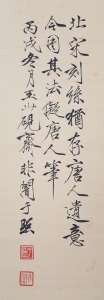 北宋刻絲猶存唐人遺意
今因其法擬唐人筆
丙戌冬月玉山硯齋非闇于照